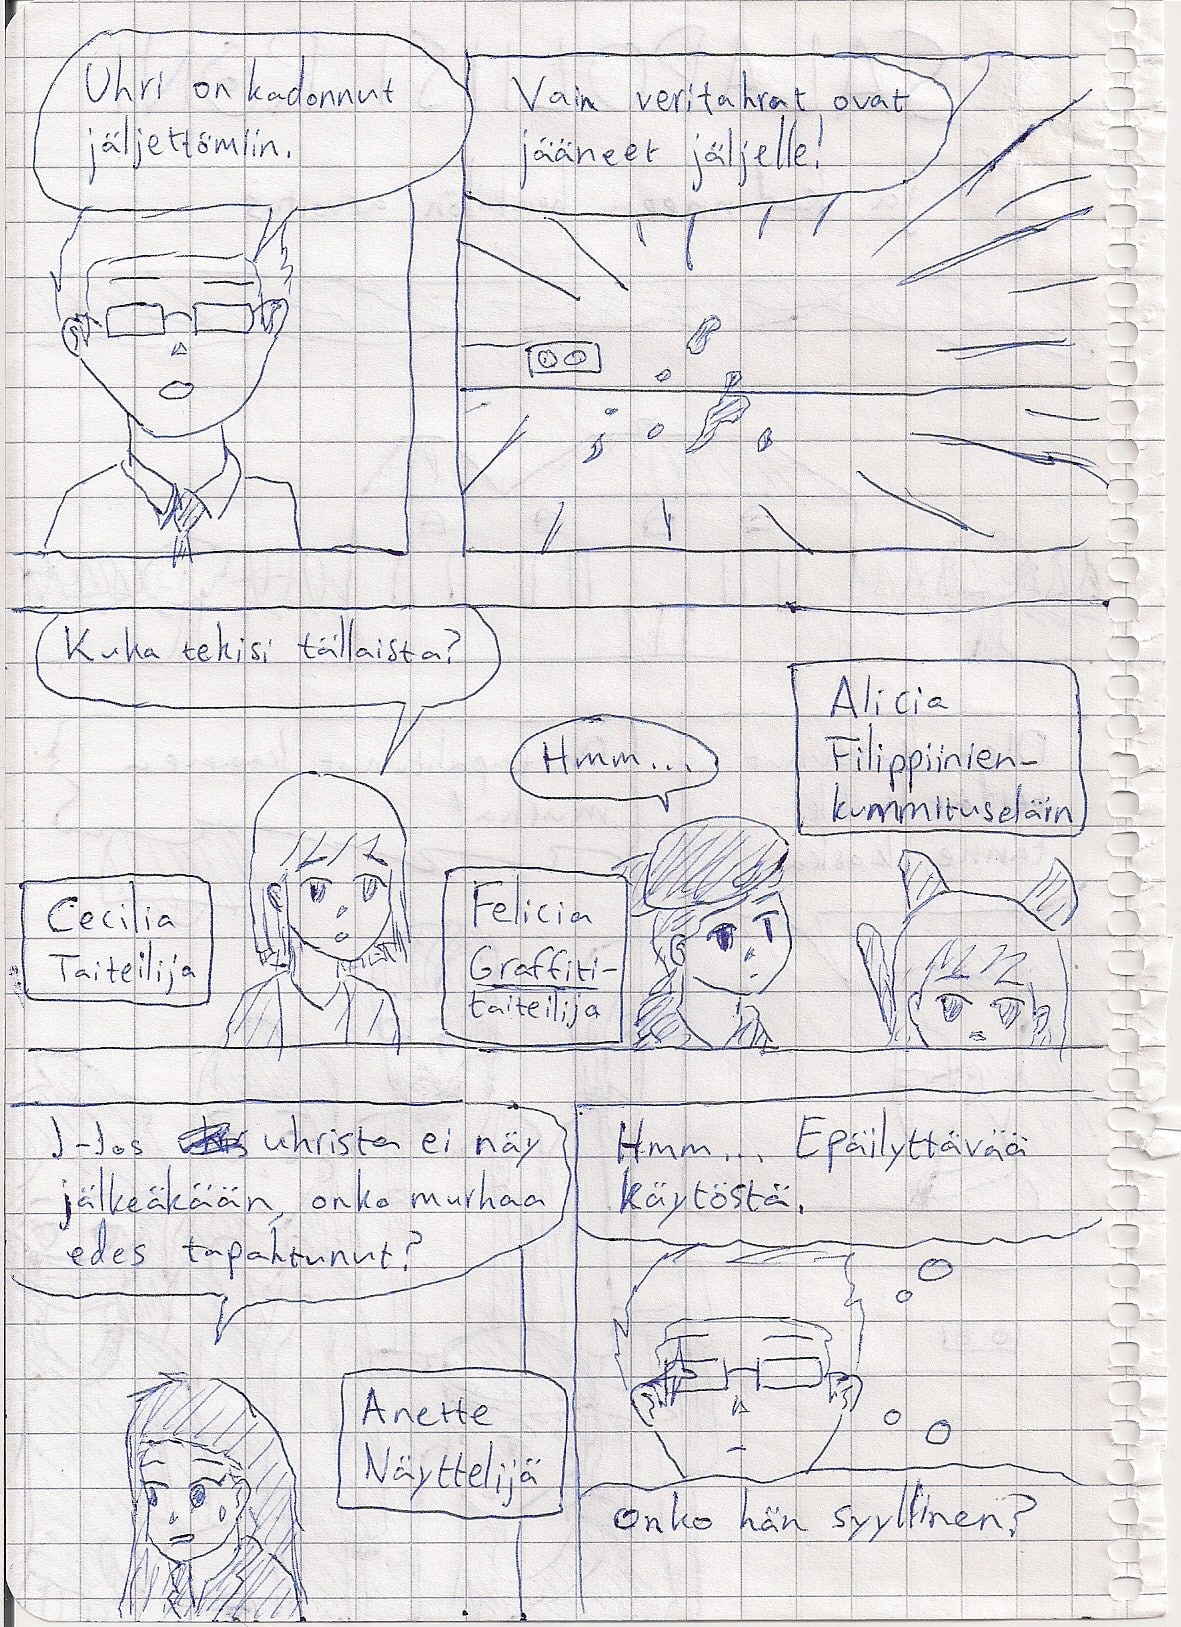 Uhri on kadonnut
jäljettömiin.
Vain veritahrat ovat
jääneet jäljelle!
Kuka tekisi tällaista?
Hmm...
Alicia
Filippiinien-
kummituseläin
Cecilia
Taiteilija
Felicia
Graffiti-
taiteilija
J-Jos uhrista ei näy
jälkeäkään, onko murhaa
edes tapahtunut?
Anette
Näyttelijä
Hmm... Epäilyttävää
käytöstä.
onko hän syyllinen?